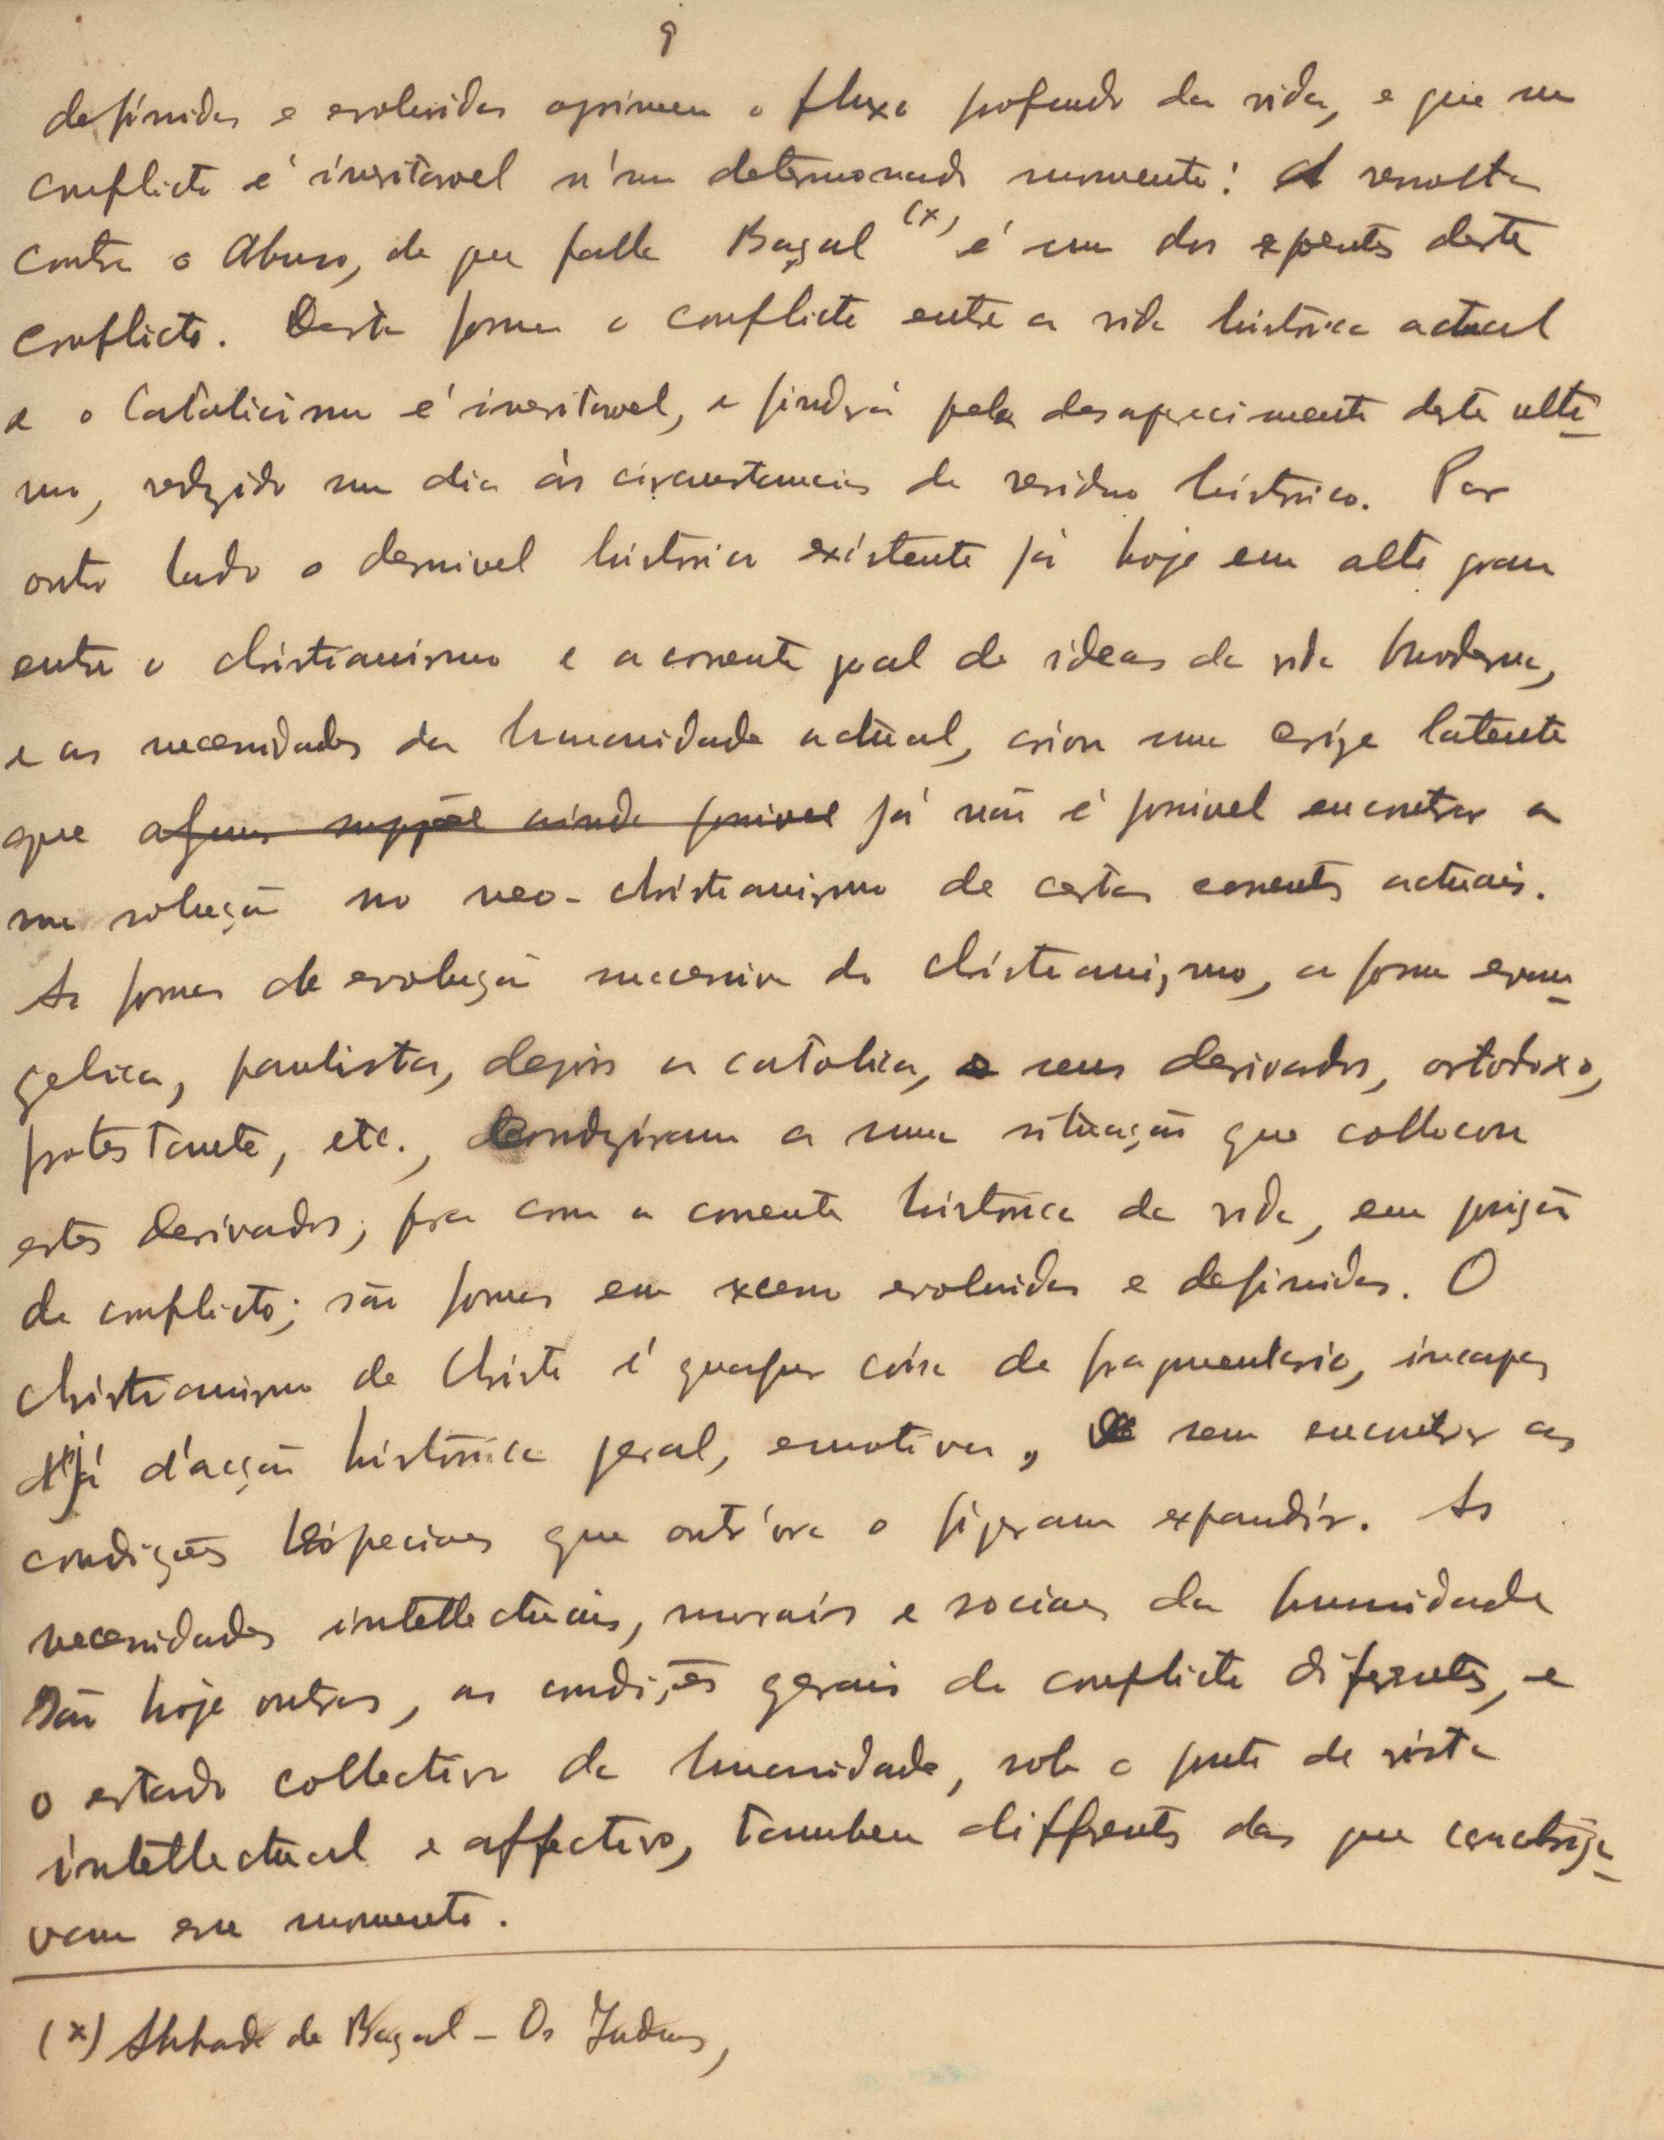 9
definidas e evoluidas oprimem o fluxo profundo da vida, e que um
conflicto é inevitavel n'um determinado momento: A revolta
contra o Abuso, de que falla Baçal (x) é um dos expoentes deste
conflicto. Desta forma o conflicto entre a vida historica actual
e o Catolicismo é inevitavel, e findará pelo desaparecimento deste ulti-
mo, reduzido um dia ás circunstancias de residuo historico. Por
outro lado o desnivel historico existente já hoje em alto grau
entre o christianismo e a corrente geral de ideas da vida moderna,
e as necessidades da humanidade actual, criou uma crize latente
que alguns suppõe ainda possivel já não é possivel encontrar a
sua solução no neo-christianismo de certas correntes actuais.
As formas de evolução sucessiva do christianismo, a forma evan-
gelica, paulista, depois a catolica, e seus derivados, ortodoxo,
protestante, etc., conduziram a uma situação que collocou
estes derivados, para com a corrente historica da vida, em posição
de conflicto; são formas em excesso evoluidas e definidas. O
christianismo de Christo é qualquer coisa de fragmentario, incapaz
já d'acção historica geral, emotiva, sem encontrar as
condições especiaes que outr'ora o fizeram expandir. As
necessidades intellectuais, morais e sociaes da humanidade
são hoje outras, as condições gerais de conflicto diferentes, e
o estado collectivo da humanidade, sob o ponto de vista
intellectual e affectivo, tambem differentes das que caracteriza-
vam esse momento.
(x) Abbade de Baçal - Os Judeus,